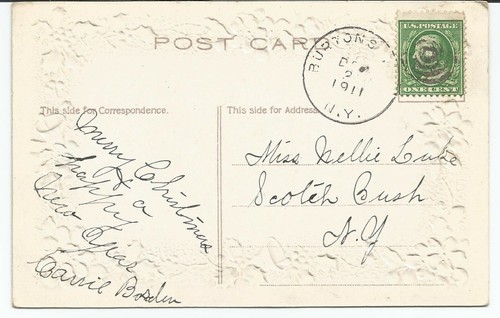 POST CARD
This side for Correspondence.
This side for Address
BURTONS
DEC
2
1911
N.Y.
U.S. POSTAGE
ONE CENT
Merry Christmas
& a
happy
New Year
Carrie Borden
Miss Nellie Luke
Scotch Bush
N.Y